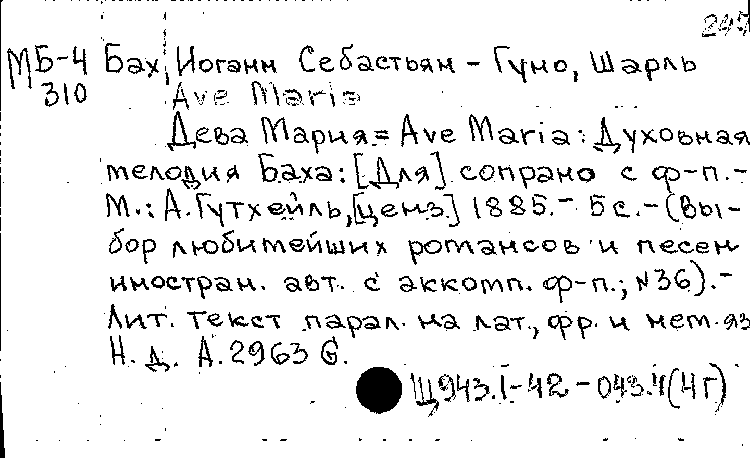 245
МБ-4 Бах, Иоганн Себастьян - Гуно, Шарль
310 Ave Maria
Дева Мария = Ave Maria: Духовная
мелодия Баха: [Для] сопрано с ф-п.-
М.: А. Гутхейль, [ценз.] 1885.- 5 с.-(Вы-
бор любимейших романсов и песен
иностран. авт. с аккомп. ф-п.; №36).-
Лит. текст парал. на лат., фр. и нем. яз
Н. д. А. 2963 G.
Щ943.1-42-043.4(4Г)